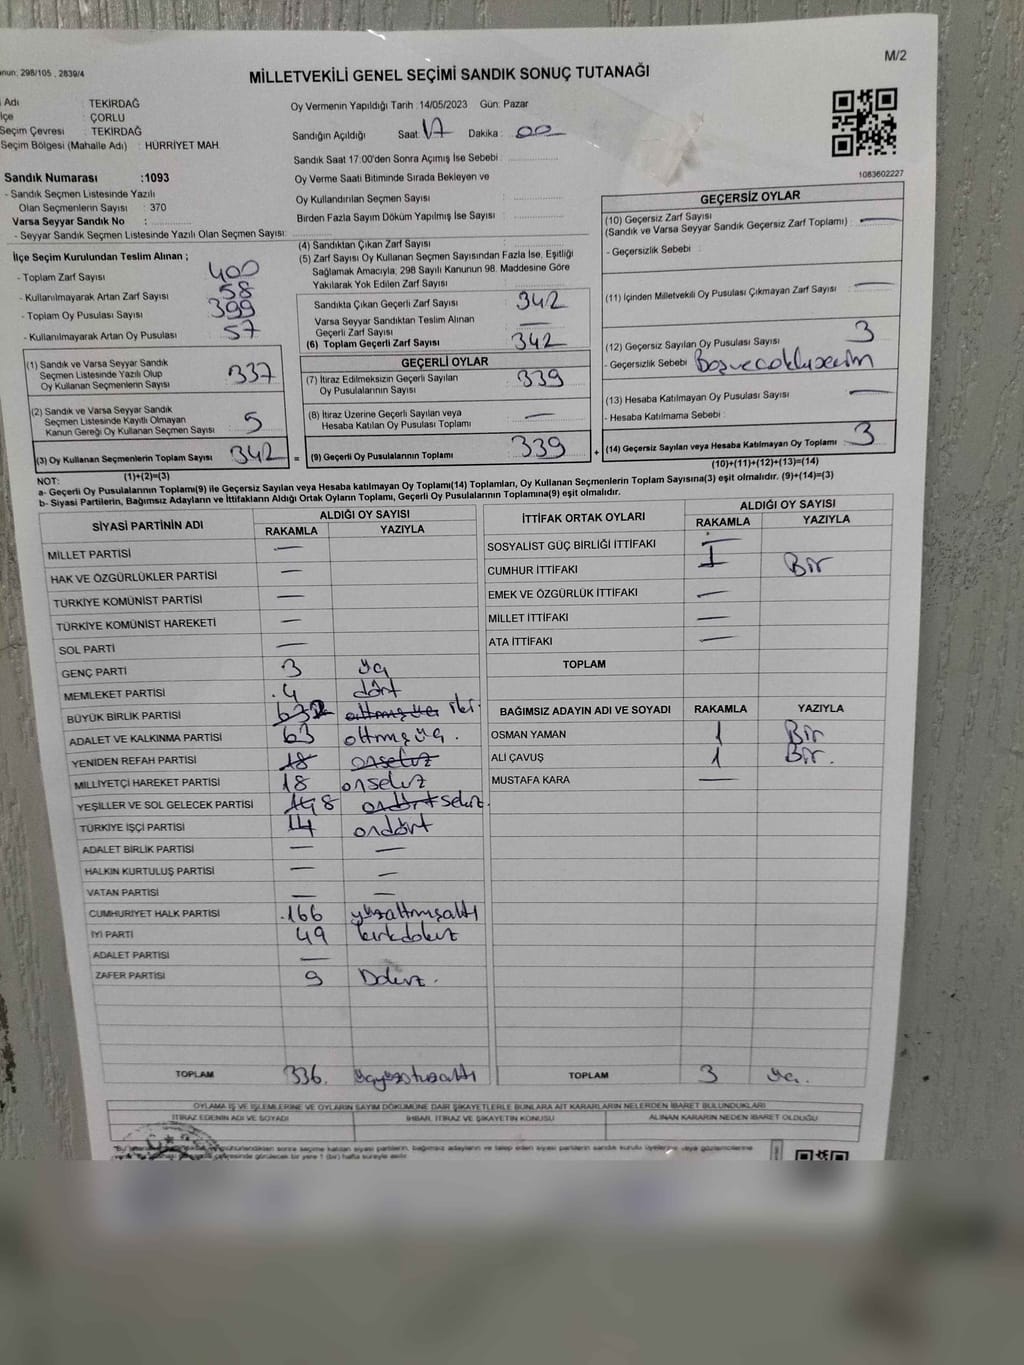 M/2
MİLLETVEKİLİ GENEL SEÇİMİ SANDIK SONUÇ TUTANAĞI
298/105 , 2839/4
Adı : TEKİRDAĞ
: ÇORLU
Seçim Çevresi : TEKİRDAĞ
Seçim Bölgesi (Mahalle Adı) : HÜRRİYET MAH.
Sandık Numarası :1093
- Sandık Seçmen Listesinde Yazılı
Olan Seçmenlerin Sayısı : 370
Varsa Seyyar Sandık No :
- Seyyar Sandık Seçmen Listesinde Yazılı Olan Seçmen Sayısı:
Oy Vermenin Yapıldığı Tarih : 14/05/2023 Gün: Pazar
Sandığın Açıldığı Saat: 17 Dakika : 00
Sandık Saat 17:00'den Sonra Açımış İse Sebebi :
Oy Verme Saati Bitiminde Sırada Bekleyen ve
Oy Kullandırılan Seçmen Sayısı :
Birden Fazla Sayım Döküm Yapılmış İse Sayısı :
1083602227
İlçe Seçim Kurulundan Teslim Alınan ;
- Toplam Zarf Sayısı 400
- Kullanılmayarak Artan Zarf Sayısı : 58
- Toplam Oy Pusulası Sayısı : 399
- Kullanılmayarak Artan Oy Pusulası : 57
(1) Sandık ve Varsa Seyyar Sandık
Seçmen Listesinde Yazılı Olup
Oy Kullanan Seçmenlerin Sayısı : 337
(2) Sandık ve Varsa Seyyar Sandık
Seçmen Listesinde Kayıtlı Olmayan
Kanun Gereği Oy Kullanan Seçmen Sayısı : 5
(3) Oy Kullanan Seçmenlerin Toplam Sayısı 342 =
(1)+(2)=(3)
(4) Sandıktan Çıkan Zarf Sayısı :
(5) Zarf Sayısı Oy Kullanan Seçmen Sayısından Fazla İse, Eşitliği
Sağlamak Amacıyla, 298 Sayılı Kanunun 98. Maddesine Göre
Yakılarak Yok Edilen Zarf Sayısı :
Sandıkta Çıkan Geçerli Zarf Sayısı : 342
Varsa Seyyar Sandıktan Teslim Alınan
Geçerli Zarf Sayısı : —
(6) Toplam Geçerli Zarf Sayısı : 342
GEÇERLİ OYLAR
(7) İtiraz Edilmeksizin Geçerli Sayılan
Oy Pusulalarının Sayısı : 339
(8) İtiraz Üzerine Geçerli Sayılan veya
Hesaba Katılan Oy Pusulası Toplamı : —
(9) Geçerli Oy Pusulalarının Toplamı : 339 +
GEÇERSİZ OYLAR
(10) Geçersiz Zarf Sayısı
(Sandık ve Varsa Seyyar Sandık Geçersiz Zarf Toplamı) : —
- Geçersizlik Sebebi :
(11) İçinden Milletvekili Oy Pusulası Çıkmayan Zarf Sayısı : —
(12) Geçersiz Sayılan Oy Pusulası Sayısı : 3
- Geçersizlik Sebebi :
(13) Hesaba Katılmayan Oy Pusulası Sayısı : —
- Hesaba Katılmama Sebebi :
(14) Geçersiz Sayılan veya Hesaba Katılmayan Oy Toplamı : 3
(10)+(11)+(12)+(13)=(14)
NOT:
a- Geçerli Oy Pusulalarının Toplamı(9) ile Geçersiz Sayılan veya Hesaba katılmayan Oy Toplamı(14) Toplamları, Oy Kullanan Seçmenlerin Toplam Sayısına(3) eşit olmalıdır. (9)+(14)=(3)
b- Siyasi Partilerin, Bağımsız Adayların ve İttifakların Aldığı Ortak Oyların Toplamı, Geçerli Oy Pusulalarının Toplamına(9) eşit olmalıdır.
SİYASİ PARTİNİN ADI ALDIĞI OY SAYISI
RAKAMLA YAZIYLA
MİLLET PARTİSİ —
HAK VE ÖZGÜRLÜKLER PARTİSİ —
TÜRKİYE KOMÜNİST PARTİSİ —
TÜRKİYE KOMÜNİST HAREKETİ —
SOL PARTİ —
GENÇ PARTİ 3 üç
MEMLEKET PARTİSİ 4 dört
BÜYÜK BİRLİK PARTİSİ 63 2 altmışüç iki
ADALET VE KALKINMA PARTİSİ 63 altmışüç
YENİDEN REFAH PARTİSİ 18 onsekiz
MİLLİYETÇİ HAREKET PARTİSİ 18 onsekiz
YEŞİLLER VE SOL GELECEK PARTİSİ 14 8 ondört sekiz
TÜRKİYE İŞÇİ PARTİSİ 14 ondört
ADALET BİRLİK PARTİSİ — —
HALKIN KURTULUŞ PARTİSİ — —
VATAN PARTİSİ — —
CUMHURİYET HALK PARTİSİ 166 yüzaltmışaltı
İYİ PARTİ 49 kırkdokuz
ADALET PARTİSİ —
ZAFER PARTİSİ 9 Dokuz.
TOPLAM 336 üçyüzotuzaltı
İTTİFAK ORTAK OYLARI ALDIĞI OY SAYISI
RAKAMLA YAZIYLA
SOSYALİST GÜÇ BİRLİĞİ İTTİFAKI —
CUMHUR İTTİFAKI 1 Bir
EMEK VE ÖZGÜRLÜK İTTİFAKI —
MİLLET İTTİFAKI —
ATA İTTİFAKI —
TOPLAM
BAĞIMSIZ ADAYIN ADI VE SOYADI RAKAMLA YAZIYLA
OSMAN YAMAN 1 Bir
ALİ ÇAVUŞ 1 Bir.
MUSTAFA KARA —
TOPLAM 3 üç.
OYLAMA İŞ VE İŞLEMLERİNE VE OYLARIN SAYIM DÖKÜMÜNE DAİR ŞİKAYETLERLE BUNLARA AİT KARARLARIN NELERDEN İBARET BULUNDUKLARI
İTİRAZ EDENİN ADI VE SOYADI İHBAR, İTİRAZ VE ŞİKAYETİN KONUSU ALINAN KARARIN NEDEN İBARET OLDUĞU